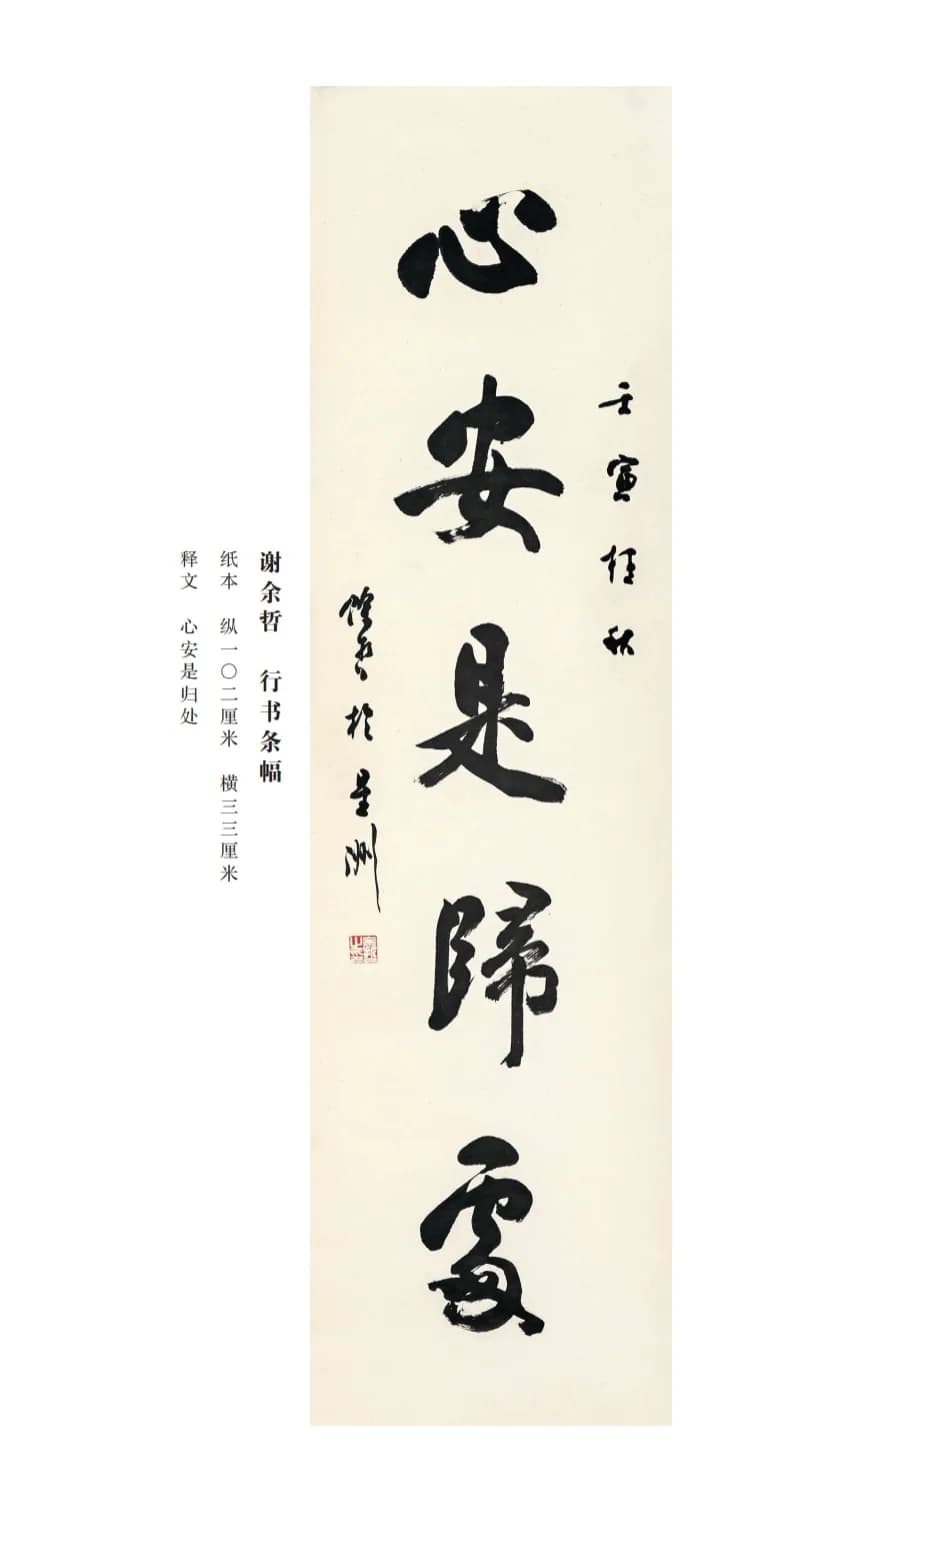 壬寅桂秋
心安是歸處
餘哲於星洲
谢余哲 行书条幅
纸本 纵一〇二厘米 横三三厘米
释文 心安是归处